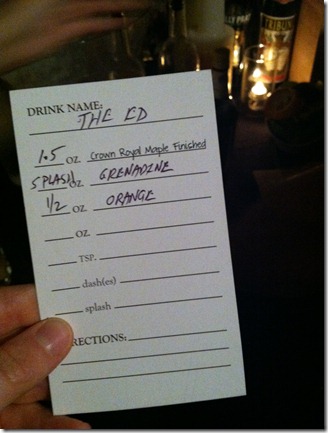 DRINK NAME:
THE ED
1.5 OZ. Crown Royal Maple Finished
SPLASH OZ. GRENADINE
1/2 OZ. ORANGE
OZ.
TSP.
dash(es)
splash
RECTIONS: